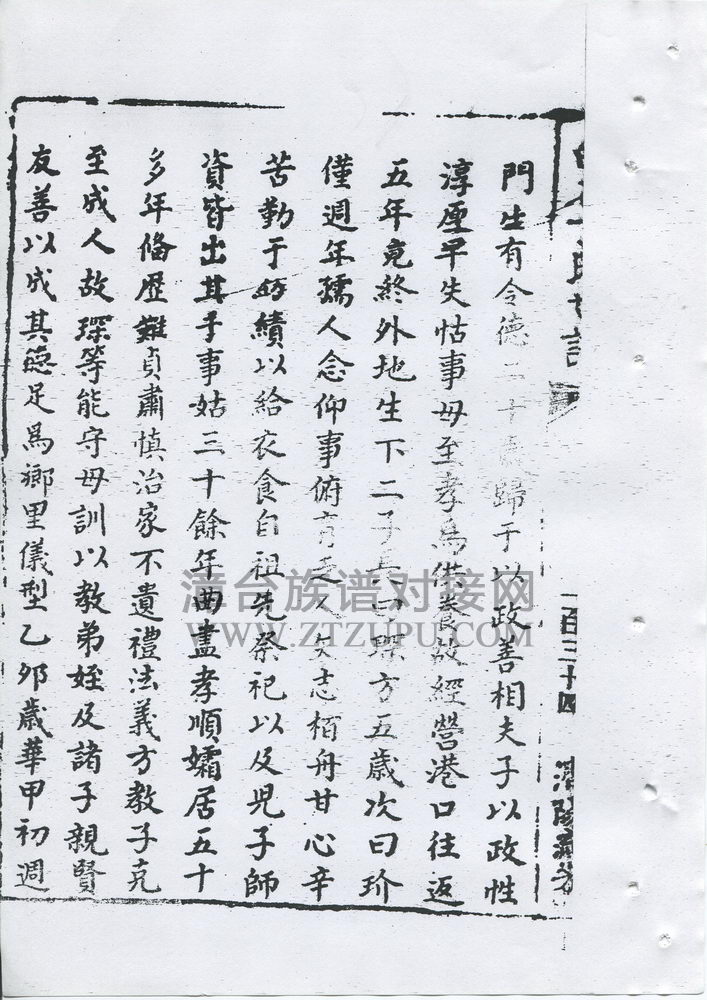 一百三十四
門生有令德二十歲歸于以政善相夫子以政性
淳厚早失怙事母至孝爲供養故經營港口往返
五年竟終外地生下二子長曰琛方五歲次曰玠
僅週年孺人念仰事俯育乏人矢志栢舟甘心辛
苦勤于紡績以給衣食自祖先祭祀以及児子師
資皆出其手事姑三十餘年曲盡孝順孀居五十
多年俻歴難貞肅慎治家不遺禮法義方教子克
至成人故琛等能守母訓以教弟姪及諸子親賢
友善以成其德足爲鄉里儀型乙夘歲華甲初週
漳台族谱对接网
WWW.ZTZUPU.COM